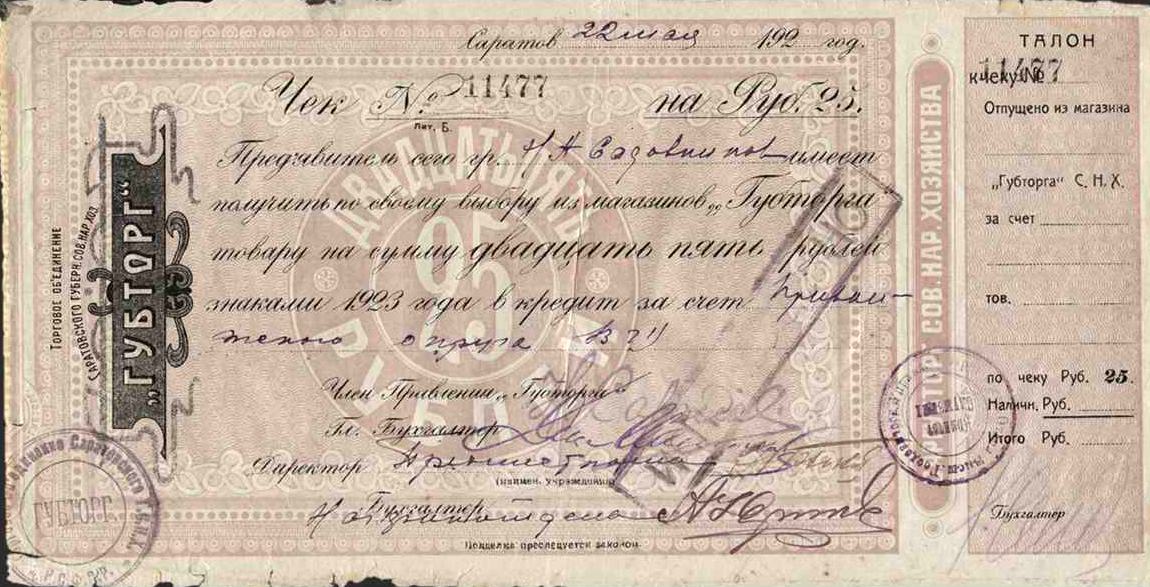 Саратов 22 мая 192 год.
Чек № 11477 на Руб. 25.
Лит. Б.
Предъявитель сего гр. Н А Садовников имеет
получить по своему выбору из магазинов „Губторга
товару на сумму двадцать пять рублей
знаками 1923 года в кредит за счет
округа
Член Правления „Губторга“
Гл. Бухгалтер
Директор
(наимен. учреждения)
Бухгалтер
Подделка преследуется законом.
ТОРГОВОЕ ОБ'ЕДИНЕНИЕ
САРАТОВСКОГО ГУБЕРН. СОВ. НАР. ХОЗ.
„ГУБТОРГ“
ДВАДЦАТЬ ПЯТЬ
25
РУБЛЕЙ
ГУБТОРГ.
ГУБТОРГ СОВ. НАР. ХОЗЯЙСТВА
ТАЛОН
к чеку № 11477
Отпущено из магазина
„Губторга“ С. Н. Х.
за счет
тов.
по чеку Руб. 25.
Наличн. Руб.
Итого Руб.
Бухгалтер